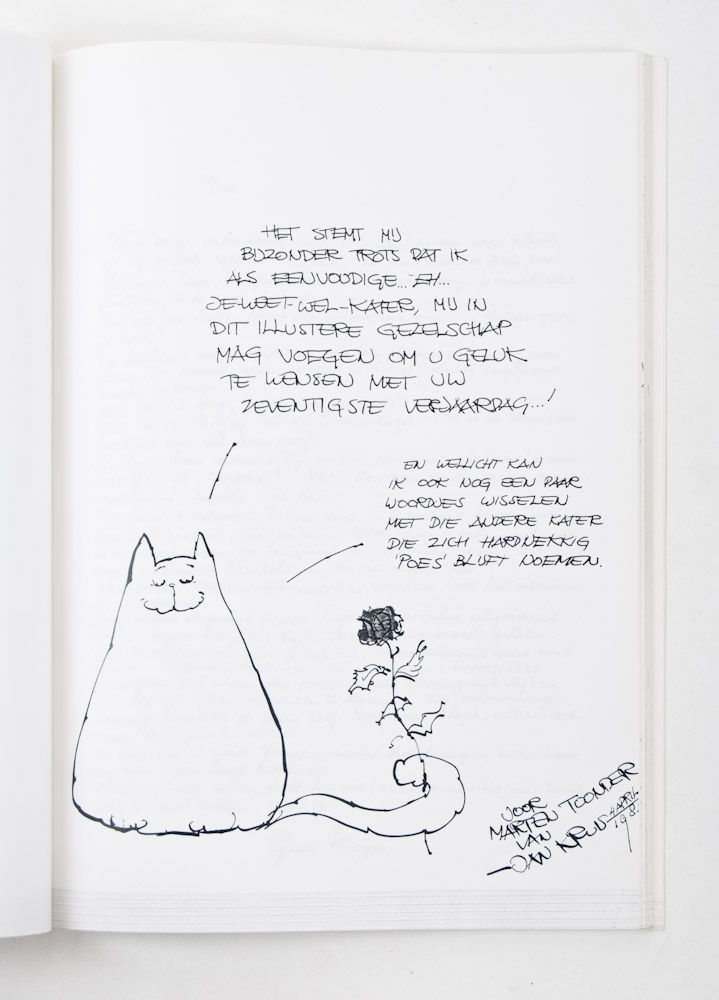 HET STEMT MIJ
BIJZONDER TROTS DAT IK
ALS EENVOUDIGE... EH...
JE-WEET-WEL-KATER, MIJ IN
DIT ILLUSTERE GEZELSCHAP
MAG VOEGEN OM U GELUK
TE WENSEN MET UW
ZEVENTIGSTE VERJAARDAG...!
EN WELLICHT KAN
IK OOK NOG EEN PAAR
WOORDJES WISSELEN
MET DIE ANDERE KATER
DIE ZICH HARDNEKKIG
'POES' BLIJFT NOEMEN.
VOOR
MARTEN TOONDER
VAN
JAN KRUIS